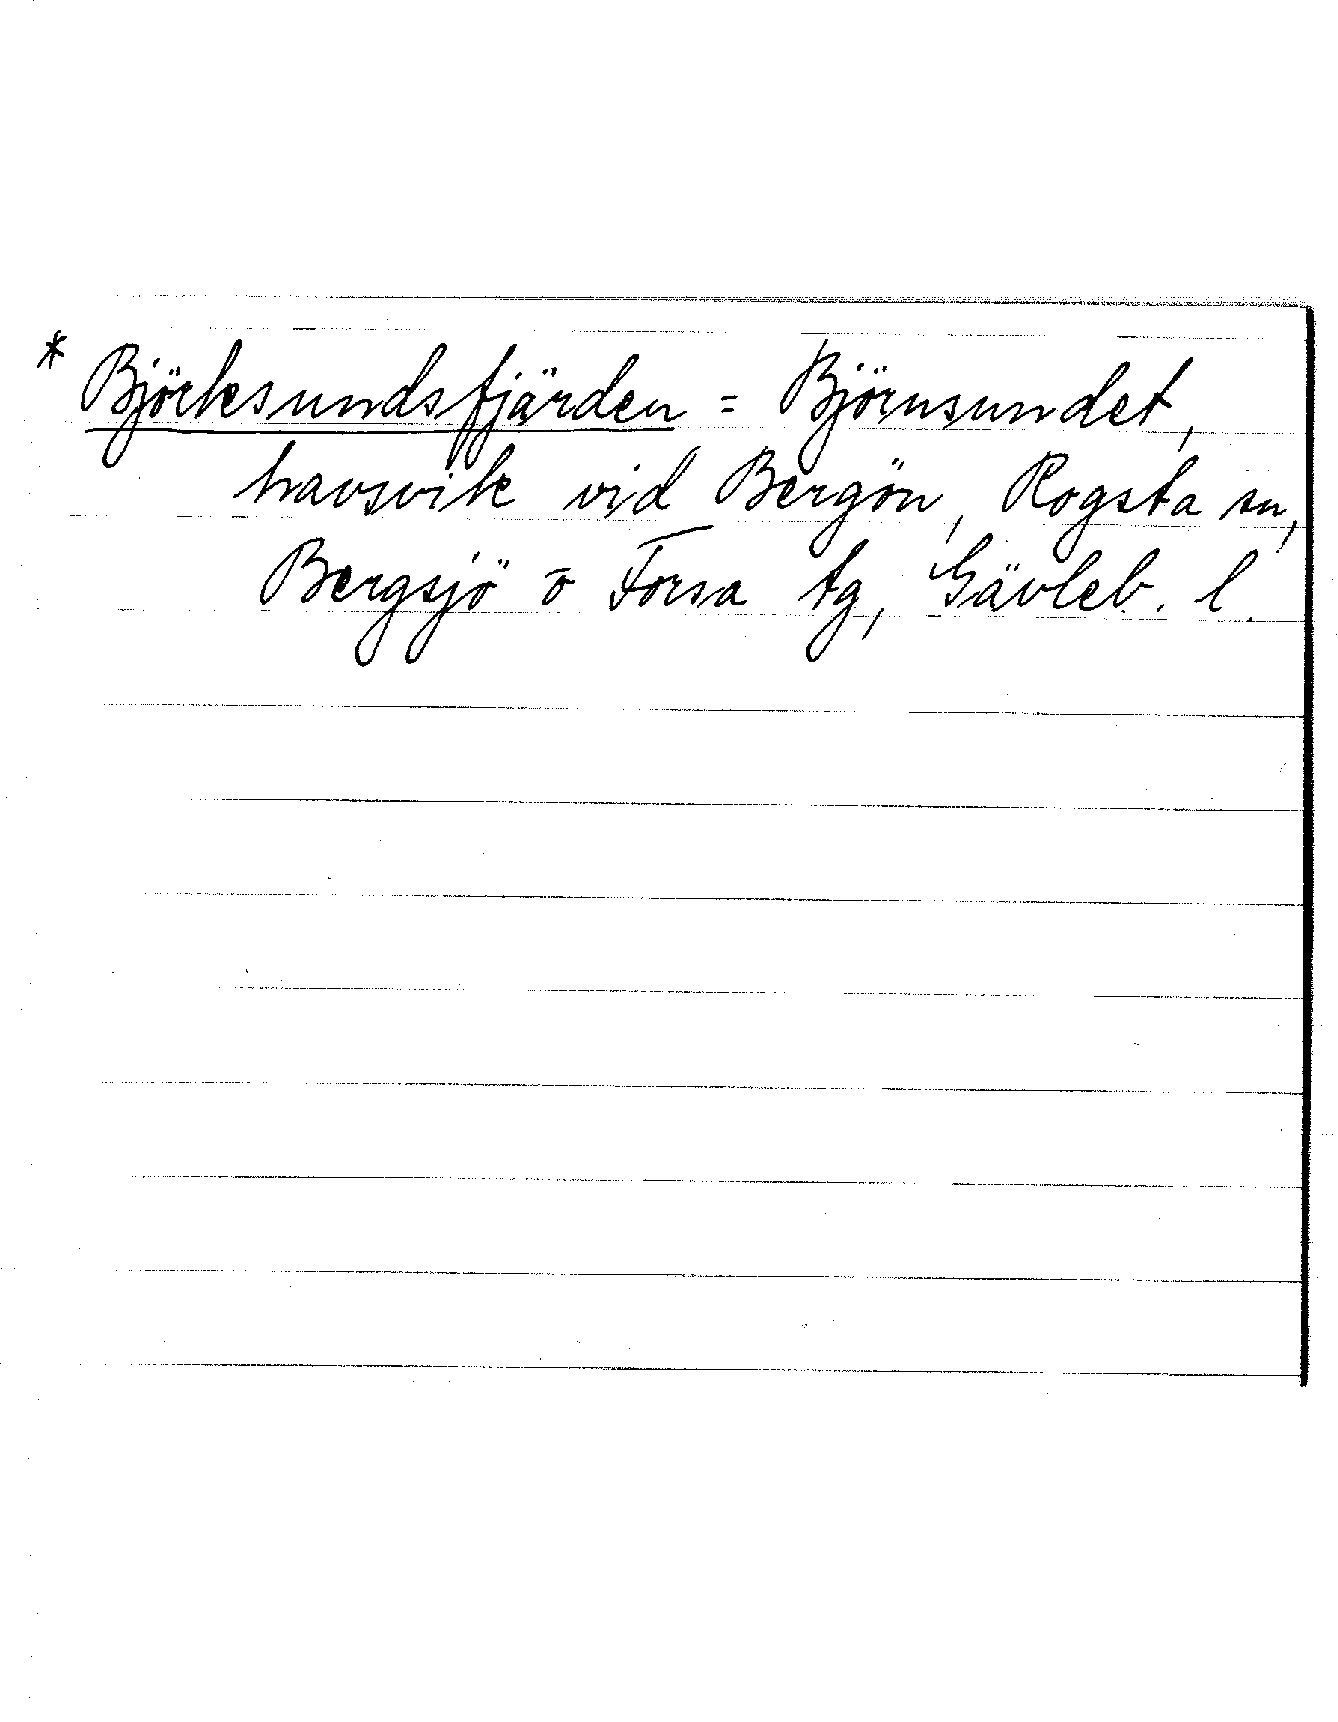 * Björksundsfjärden = Björnsundet,
havsvik vid Bergön, Rogsta sn,
Bergsjö o Forsa tg, Gävleb. l.